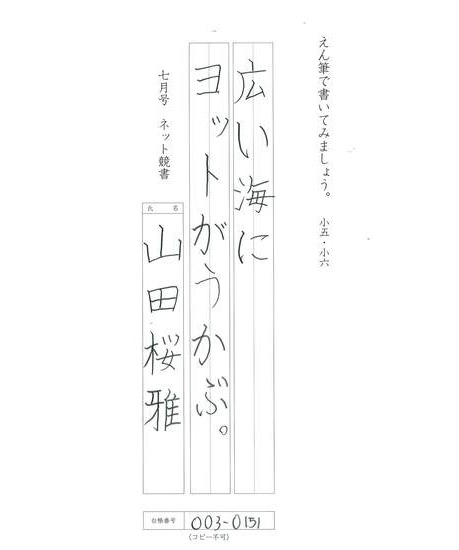 えん筆で書いてみましょう。 小五・小六
広い海に
ヨットがうかぶ。
七月号 ネット競書
氏名
山田桜雅
台帳番号 003-0151
(コピー不可)